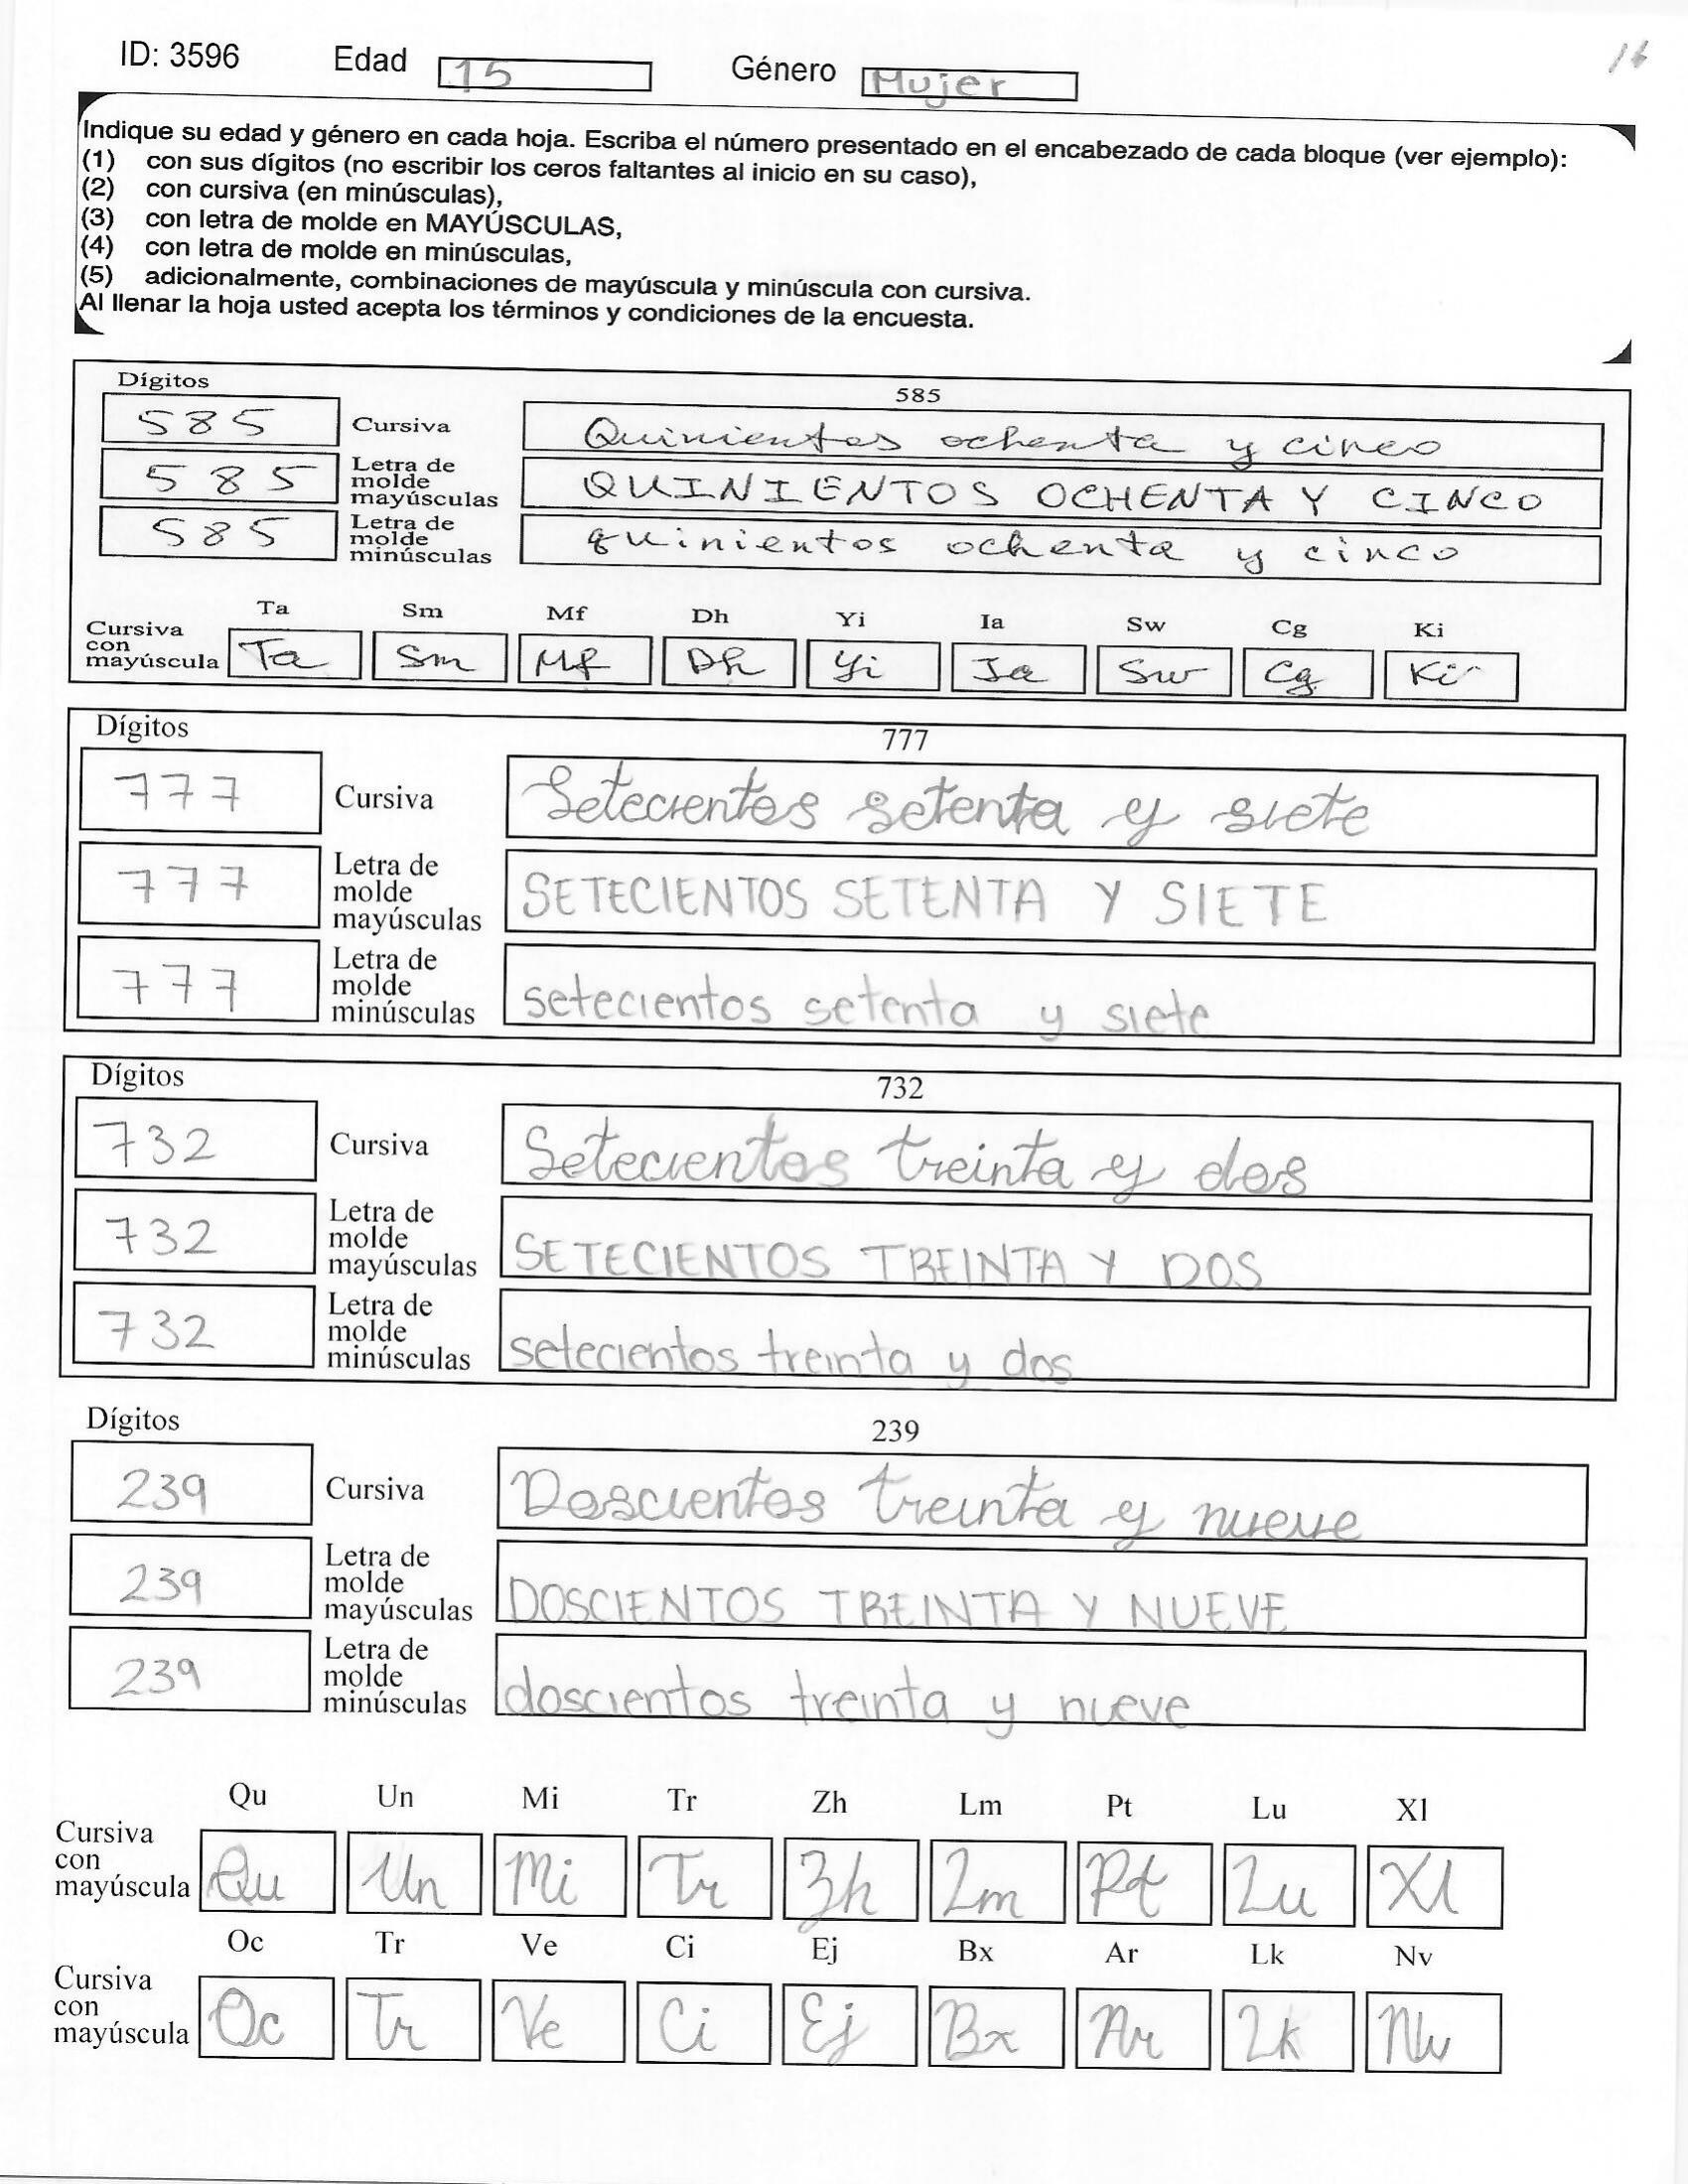 ID: 3596 Edad 15 Género Mujer 16
Indique su edad y género en cada hoja. Escriba el número presentado en el encabezado de cada bloque (ver ejemplo):
(1) con sus dígitos (no escribir los ceros faltantes al inicio en su caso),
(2) con cursiva (en minúsculas),
(3) con letra de molde en MAYÚSCULAS,
(4) con letra de molde en minúsculas,
(5) adicionalmente, combinaciones de mayúscula y minúscula con cursiva.
Al llenar la hoja usted acepta los términos y condiciones de la encuesta.
Dígitos 585
585 Cursiva Quinientos ochenta y cinco
585 Letra de molde mayúsculas QUINIENTOS OCHENTA Y CINCO
585 Letra de molde minúsculas quinientos ochenta y cinco
Ta Sm Mf Dh Yi Ia Sw Cg Ki
Cursiva con mayúscula Ta Sm Mf Dh Yi Ia Sw Cg Ki
Dígitos 777
777 Cursiva Setecientos setenta y siete
777 Letra de molde mayúsculas SETECIENTOS SETENTA Y SIETE
777 Letra de molde minúsculas setecientos setenta y siete
Dígitos 732
732 Cursiva Setecientos treinta y dos
732 Letra de molde mayúsculas SETECIENTOS TREINTA Y DOS
732 Letra de molde minúsculas setecientos treinta y dos
Dígitos 239
239 Cursiva Doscientos treinta y nueve
239 Letra de molde mayúsculas DOSCIENTOS TREINTA Y NUEVE
239 Letra de molde minúsculas doscientos treinta y nueve
Qu Un Mi Tr Zh Lm Pt Lu Xl
Cursiva con mayúscula Qu Un Mi Tr Zh Lm Pt Lu Xl
Oc Tr Ve Ci Ej Bx Ar Lk Nv
Cursiva con mayúscula Oc Tr Ve Ci Ej Bx Ar Lk Nv